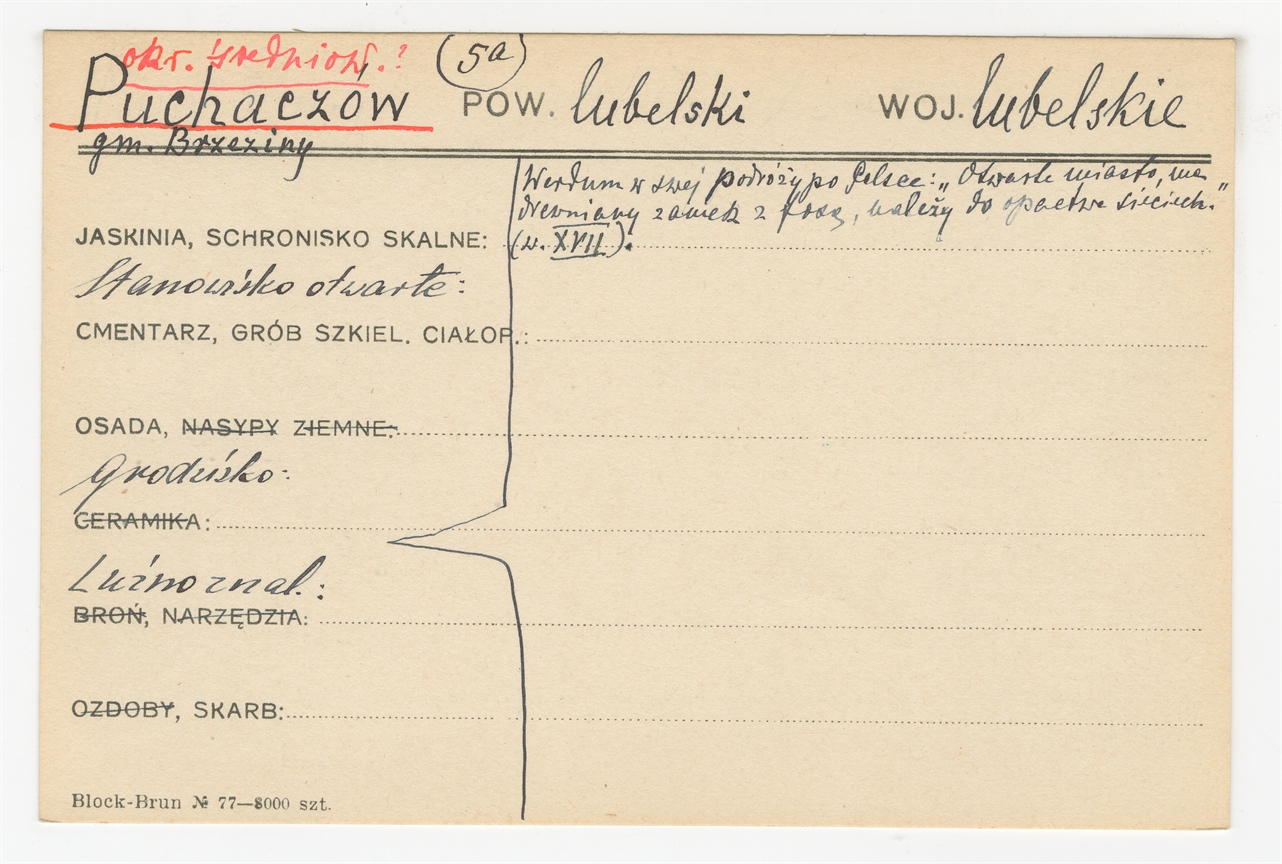 okr. średniow.?
(5a)
Puchaczów POW. lubelski WOJ. lubelskie
gm. Brzeziny
Werdum w swej podróży po Polsce: „Otwarte miasto, ma
drewniany zamek z fosą, należy do opactwa sieciech."
(w. XVII).
JASKINIA, SCHRONISKO SKALNE:
Stanowisko otwarte:
CMENTARZ, GRÓB SZKIEL. CIAŁOP.:
OSADA, NASYPY ZIEMNE:
Grodzisko:
CERAMIKA:
Luźno znal.:
BROŃ, NARZĘDZIA:
OZDOBY, SKARB:
Block-Brun № 77—8000 szt.